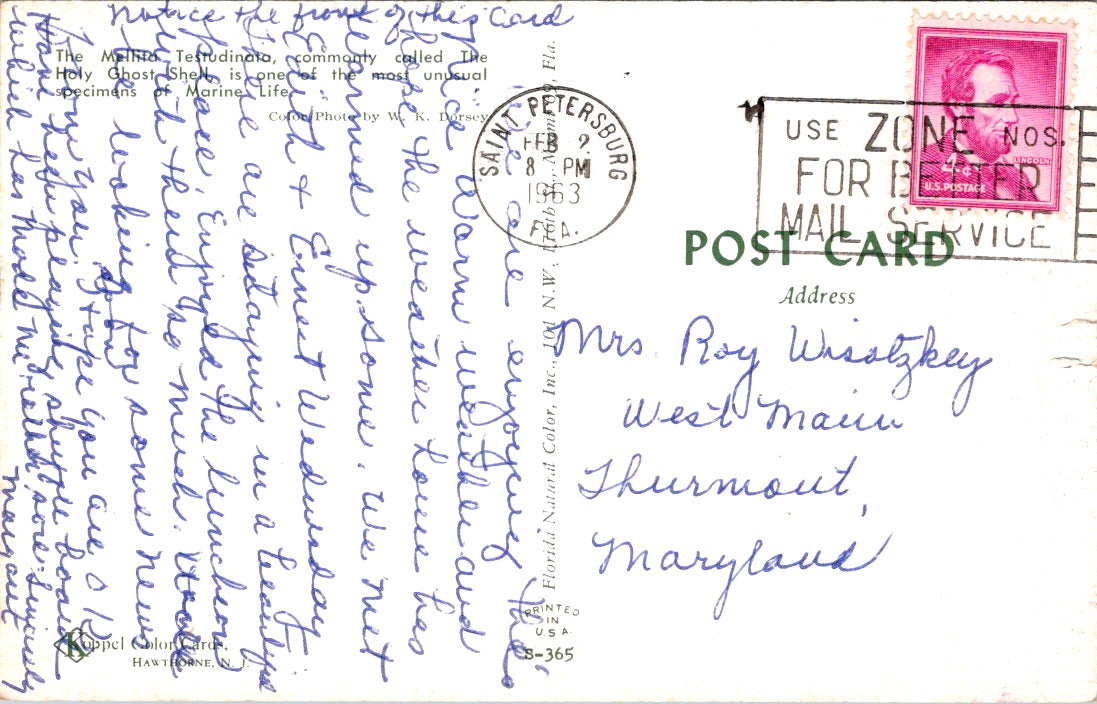 Notice the front of this Card
The Mellita Testudinata, commonly called The
Holy Ghost Shell, is one of the most unusual
specimens of Marine Life.
Color Photo by W. K. Dorsey
We are enjoying the
nice warm weather and
hope the weather home has
warmed up some. We met
Edith & Ernest Wednesday
There are staying in a beautiful
place. Enjoyed the luncheon
with them so much.
Be looking for some news
from you. Hope you are O K
Have been playing shuffle board
which has made me rather sore. Sincerely
Margaret
Koppel Color Cards,
HAWTHORNE, N. J.
Florida Natural Color, Inc., N.W., Fla.
PRINTED
IN
U.S.A.
S-365
SAINT PETERSBURG
FEB 2
8 PM
1963
FLA.
USE ZONE NOS.
FOR BETTER
MAIL SERVICE
LINCOLN
4¢
U.S. POSTAGE
POST CARD
Address
Mrs Roy Wisotzkey
West Main
Thurmont,
Maryland